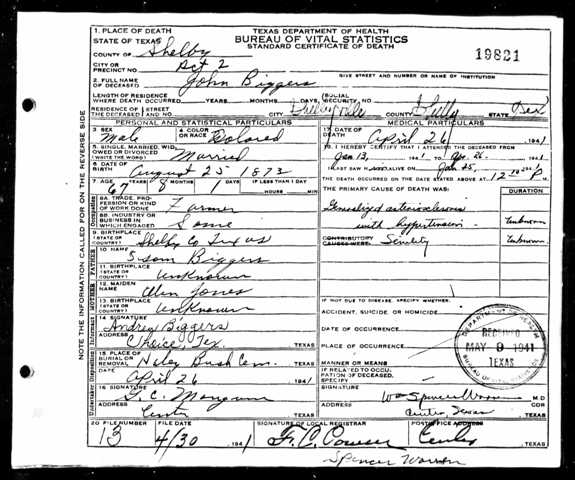 1. PLACE OF DEATH
STATE OF TEXAS
COUNTY OF Shelby
CITY OR PRECINCT NO. Pct 2
TEXAS DEPARTMENT OF HEALTH
BUREAU OF VITAL STATISTICS
STANDARD CERTIFICATE OF DEATH
19821
GIVE STREET AND NUMBER OR NAME OF INSTITUTION
2. FULL NAME OF DECEASED John Biggers
LENGTH OF RESIDENCE WHERE DEATH OCCURRED YEARS MONTHS DAYS SOCIAL SECURITY NO.
RESIDENCE OF THE DECEASED STREET AND NO. CITY Shelbyville COUNTY Shelby STATE Tex
PERSONAL AND STATISTICAL PARTICULARS
3. SEX Male
4. COLOR OR RACE Colored
5. SINGLE, MARRIED, WIDOWED OR DIVORCED (WRITE THE WORD) Married
6. DATE OF BIRTH August 25- 1873
7. AGE 67 YEARS 8 MONTHS 1 DAYS IF LESS THAN 1 DAY HOURS MIN.
8A. TRADE, PROFESSION OR KIND OF WORK DONE Farmer
8B. INDUSTRY OR BUSINESS IN WHICH ENGAGED Same
9. BIRTHPLACE (STATE OR COUNTRY) Shelby Co Texas
10. NAME Isom Biggers
11. BIRTHPLACE (STATE OR COUNTRY) Unknown
12. MAIDEN NAME Jones
13. BIRTHPLACE (STATE OR COUNTRY) Unknown
14. SIGNATURE Andrey Biggers
ADDRESS Choice, Tex. TEXAS
15. PLACE OF BURIAL OR REMOVAL Bush Cem. TEXAS
DATE April 26 1941
16. SIGNATURE G. C. Mangum
ADDRESS Center TEXAS
MEDICAL PARTICULARS
17. DATE OF DEATH April 26 1941
18. I HEREBY CERTIFY THAT I ATTENDED THE DECEASED FROM
Jan 13, 1941 TO Apr. 26- 1941
I LAST SAW H ALIVE ON
THE DEATH OCCURRED ON THE DATE STATED ABOVE AT 12 P M.
THE PRIMARY CAUSE OF DEATH WAS: DURATION
Generalized arteriosclerosis
with hypertension Unknown
CONTRIBUTORY CAUSES WERE: Senility Unknown
IF NOT DUE TO DISEASE, SPECIFY WHETHER:
ACCIDENT, SUICIDE, OR HOMICIDE
DATE OF OCCURRENCE
PLACE OF OCCURRENCE
MANNER OR MEANS
IF RELATED TO OCCUPATION OF DECEASED, SPECIFY
SIGNATURE Wm Spencer Warren M.D.
ADDRESS Center, Texas TEXAS
TEXAS DEPARTMENT OF HEALTH
RECEIVED
MAY 9 1941
TEXAS
BUREAU OF VITAL STATISTICS
20. FILE NUMBER 13
FILE DATE 4/30 1941
SIGNATURE OF LOCAL REGISTRAR
POST OFFICE ADDRESS Center TEXAS
Spencer Warren
NOTE THE INFORMATION CALLED FOR ON THE REVERSE SIDE
Occupation
FATHER
MOTHER
Informant
Undertaker
Disposition